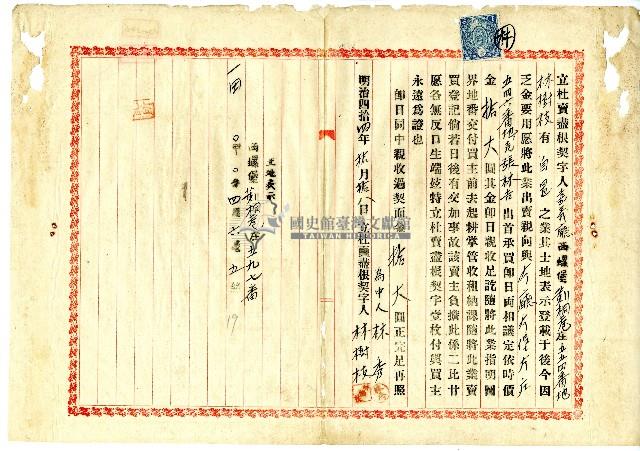 立杜賣盡根契字人嘉義廳西螺堡莿桐巷庄五五四番地
林樹枝有自己之業其土地表示登載于後今因
乏金要用愿將此業出賣親向與仝廳仝堡仝庄
五四六番地張林吉出首承買即日両相議定依時價
金拾大圓其金即日親收足訖隨將此業指明園
界地番交付買主前去起耕掌管收租納課隨將此業賣
買登記倘若日後有交加事故該賣主負擔此係二比甘
愿各無反口生端玆特立杜賣盡根契字壹枚付與買主
永遠為證也
即日同中親收過契面金拾大圓正完足再照
為中人林秀
明治四拾四年拾月拾八日立杜賣盡根契字人林樹枝
土地表示
西螺堡莿桐巷庄五九七番
一田
〇甲〇分四厘七毛五糸
國史館臺灣文獻館
TAIWAN HISTORICA